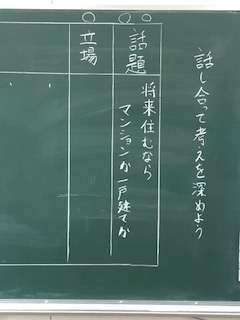 話し合って考えを深めよう
話題
将来住むなら
マンションか一戸建てか
立場